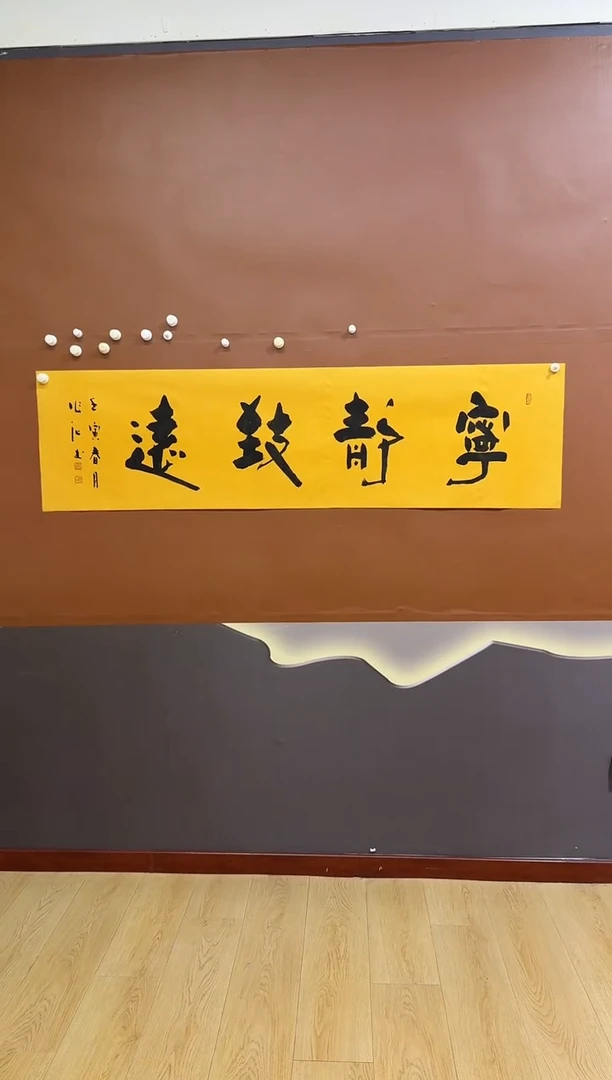 寧靜致遠
壬寅春月